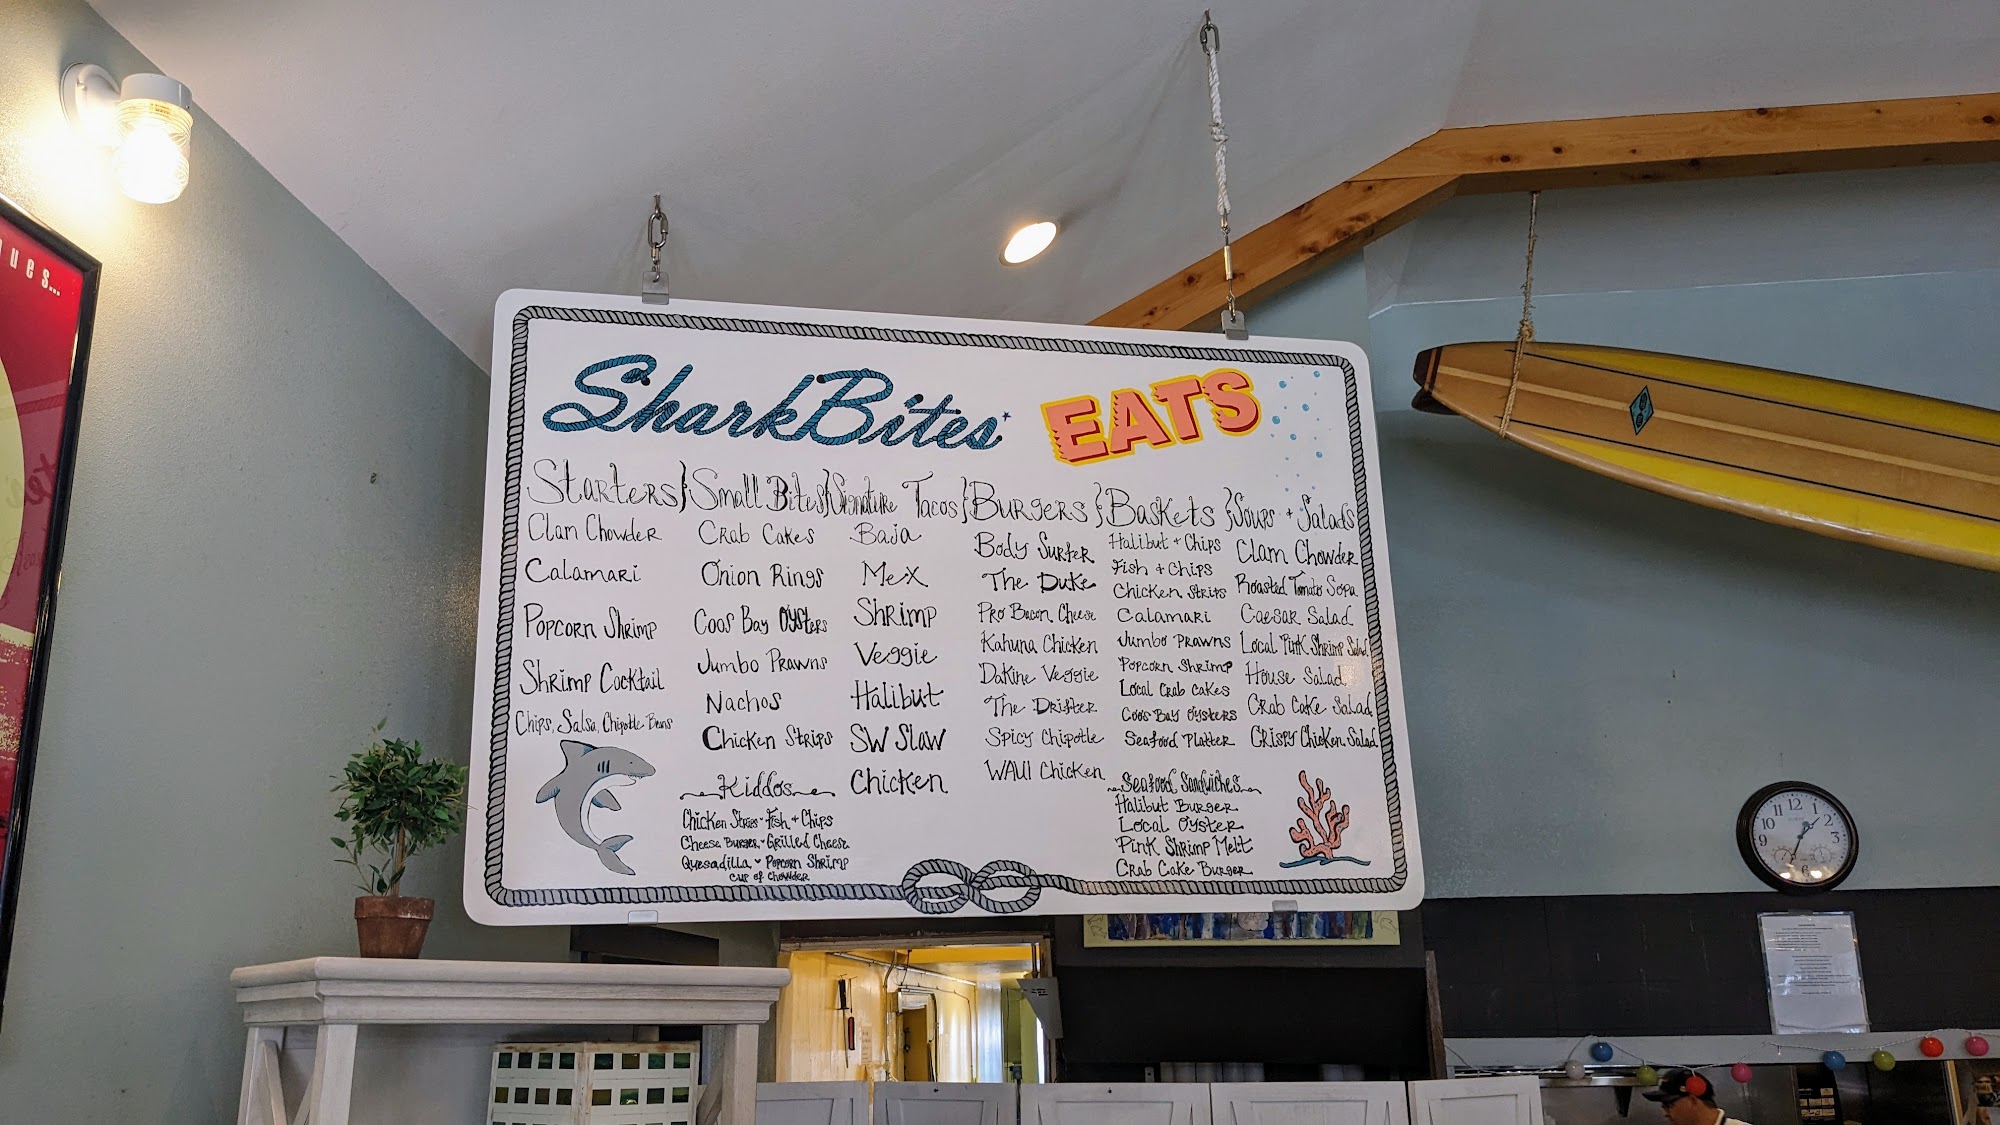 ues...
SharkBites EATS
Starters
Clam Chowder
Calamari
Popcorn Shrimp
Shrimp Cocktail
Chips, Salsa, Chipotle Beans
Small Bites
Crab Cakes
Onion Rings
Coos Bay Oysters
Jumbo Prawns
Nachos
Chicken Strips
Kiddos
Chicken Strips - Fish + Chips
Cheese Burger - Grilled Cheese
Quesadilla - Popcorn Shrimp
Cup of Chowder
Signature Tacos
Baja
Mex
Shrimp
Veggie
Halibut
SW Slaw
Chicken
Burgers
Body Surfer
The Duke
Pro Bacon Cheese
Kahuna Chicken
DaKine Veggie
The Drifter
Spicy Chipotle
WAUI Chicken
Baskets
Halibut + Chips
Fish + Chips
Chicken Strips
Calamari
Jumbo Prawns
Popcorn Shrimp
Local Crab Cakes
Coos Bay Oysters
Seafood Platter
Seafood Sandwiches
Halibut Burger
Local Oyster
Pink Shrimp Melt
Crab Cake Burger
Soups + Salads
Clam Chowder
Roasted Tomato Sopa
Caesar Salad
Local Pink Shrimp Salad
House Salad
Crab Cake Salad
Crispy Chicken Salad
12
1
2
3
6
9
10
11